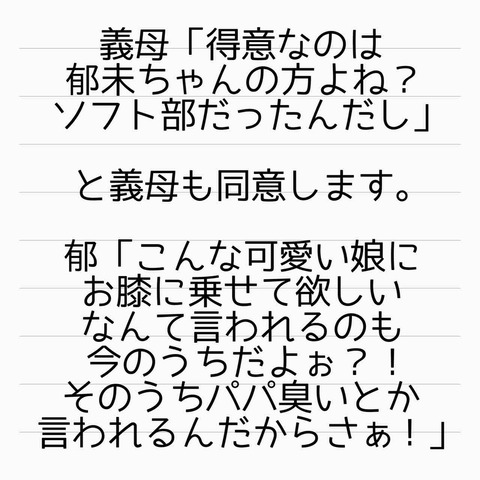 義母「得意なのは
郁未ちゃんの方よね？
ソフト部だったんだし」
と義母も同意します。
郁「こんな可愛い娘に
お膝に乗せて欲しい
なんて言われるのも
今のうちだよぉ？！
そのうちパパ臭いとか
言われるんだからさぁ！」